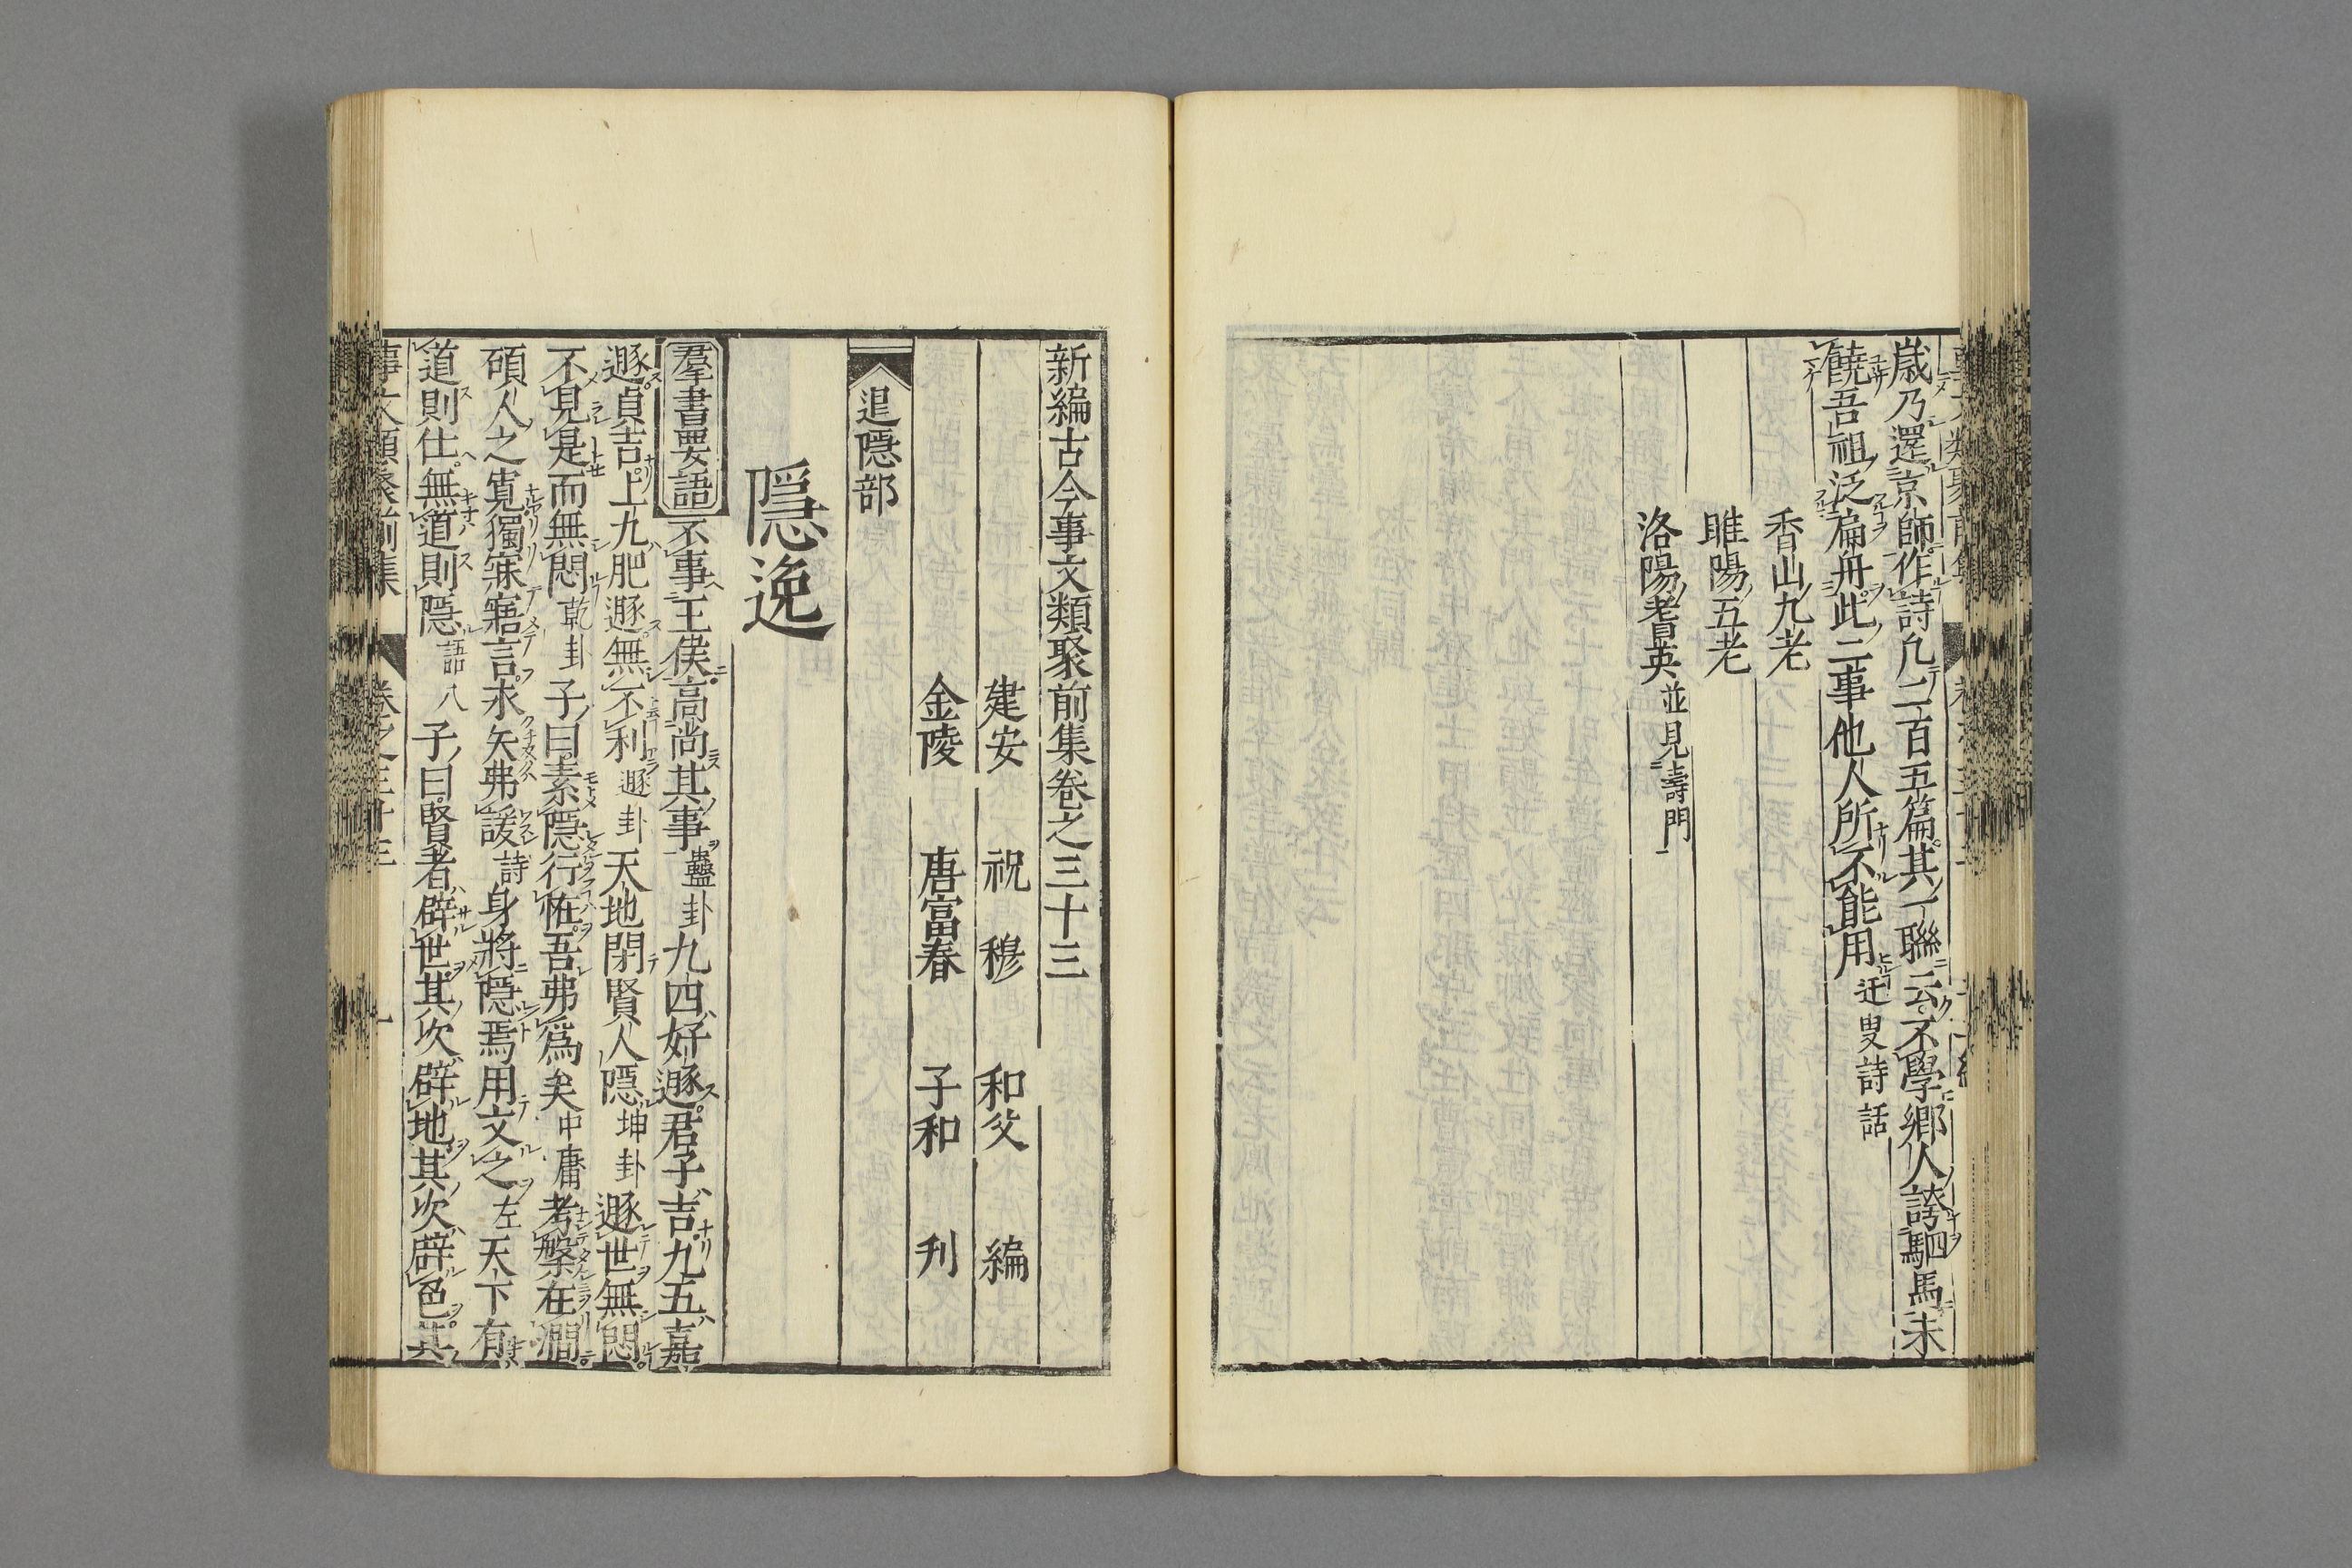 歳乃還京師作詩凢二百五篇其一聯云不學鄉人誇駟馬未
饒吾祖泛扁舟此二事他人所不能用迂叟詩話
香山九老
睢陽五老
洛陽耆英並見壽門
新編古今事文類聚前集卷之三十三
建安 祝 穆 和父 編
金陵 唐富春 子和 刋
退隱部
隱逸
羣書要語 不事王侯高尚其事蠱卦九四好遯君子吉九五嘉
遯貞吉上九肥遯無不利遯卦天地閉賢人隱坤卦遯世無悶
不見是而無悶乾卦子曰素隱行恠吾弗爲矣中庸考槃在澗
碩人之寬獨寐寤言永矢弗諼詩身將隱焉用文之左天下有
道則仕無道則隱語八子曰賢者辟世其次辟地其次辟色其
事文類聚前集 卷之三十三 一